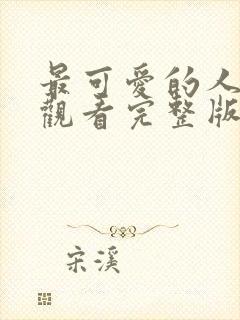 最可愛的人
觀看完整版
宋溪